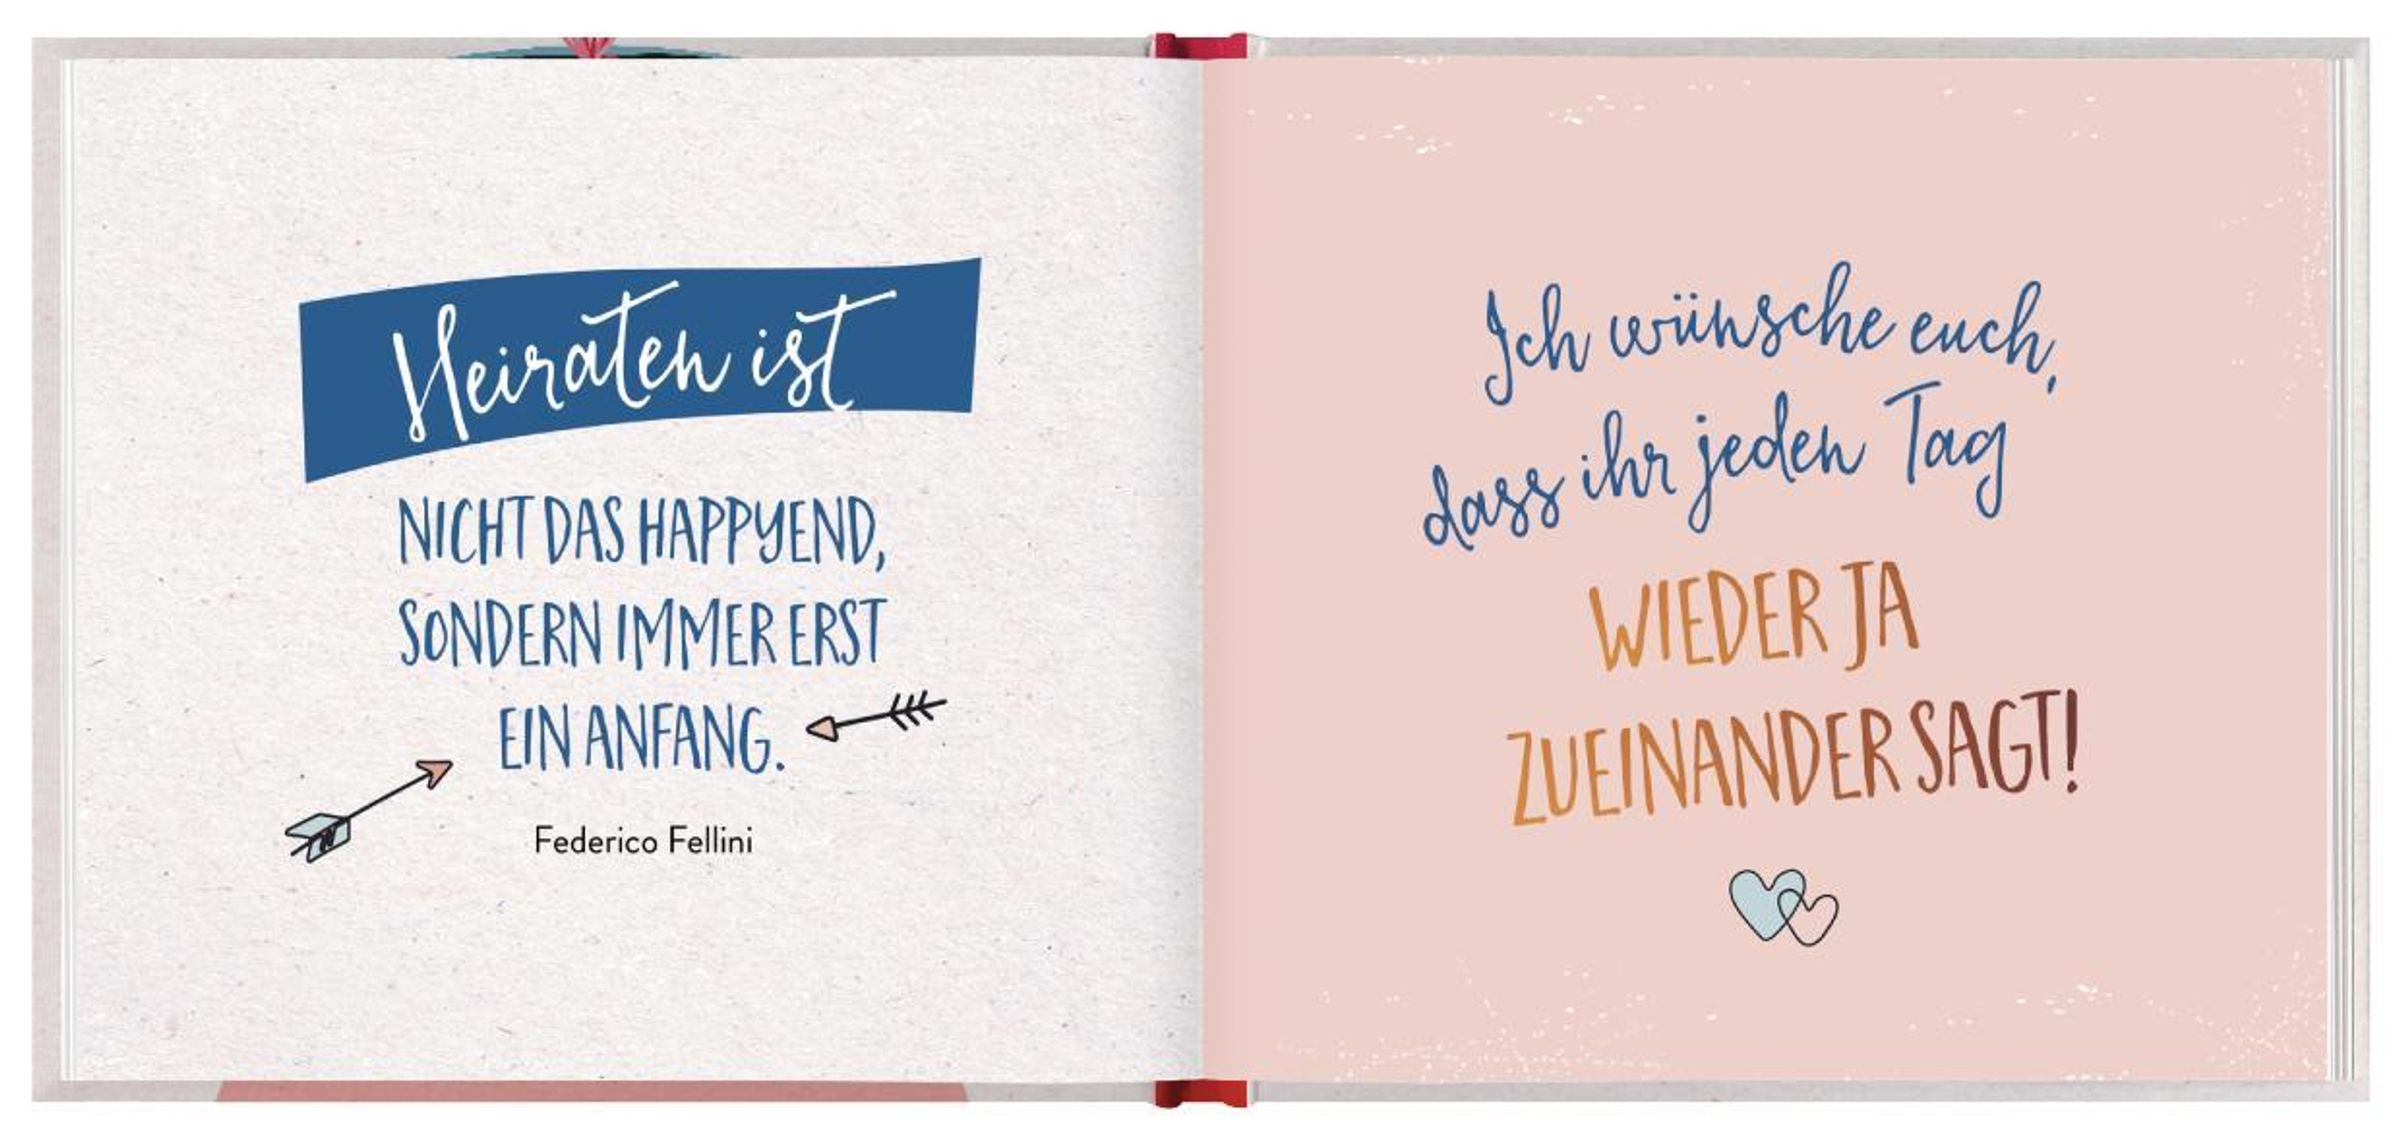 Heiraten ist
NICHT DAS HAPPYEND,
SONDERN IMMER ERST
EIN ANFANG.
Federico Fellini
Ich wünsche euch,
dass ihr jeden Tag
WIEDER JA
ZUEINANDER SAGT!